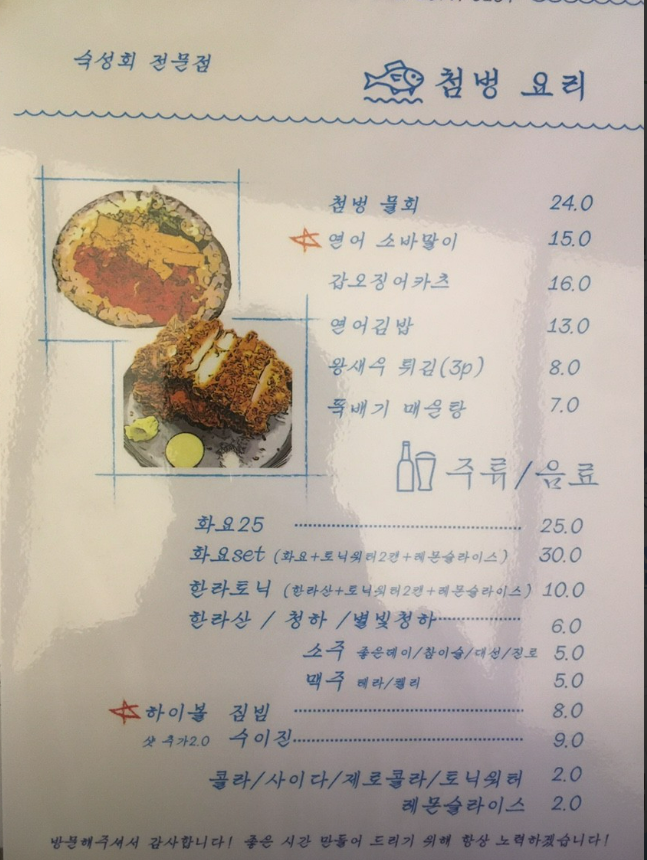 숙성회 전문점
첨벙 요리
첨벙 물회 24.0
연어 소바말이 15.0
갑오징어카츠 16.0
연어김밥 13.0
왕새우 튀김(3p) 8.0
뚝배기 매운탕 7.0
주류/음료
화요25 25.0
화요set (화요+토닉워터2캔+레몬슬라이스) 30.0
한라토닉 (한라산+토닉워터2캔+레몬슬라이스) 10.0
한라산 / 청하 /별빛청하 6.0
소주 좋은데이/참이슬/대선/진로 5.0
맥주 테라/켈리 5.0
하이볼 짐빔 8.0
샷 추가2.0 수이진 9.0
콜라/사이다/제로콜라/토닉워터 2.0
레몬슬라이스 2.0
방문해주셔서 감사합니다! 좋은 시간 만들어 드리기 위해 항상 노력하겠습니다!